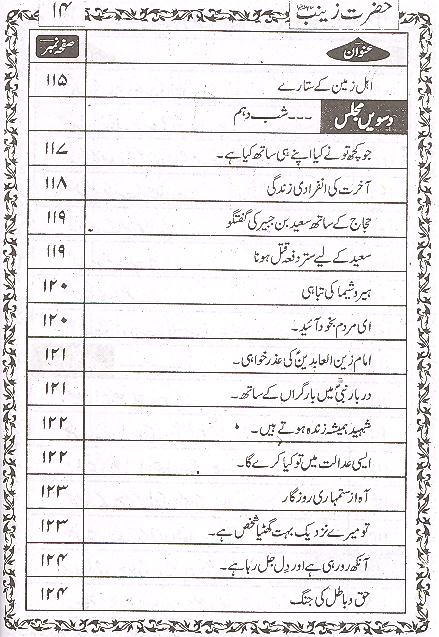 حضرت زینبؑ ۱۴
عنوان صفحہ نمبر
اہل زمین کے ستارے ۱۱۵
دسویں مجلس ---شب دہم
جو کچھ تو نے کیا اپنے ہی ساتھ کیا ہے۔ ۱۱۷
آخرت کی انفرادی زندگی ۱۱۸
حجاج کے ساتھ سعید بن جبیر کی گفتگو ۱۱۹
سعید کے لیے ستر دفعہ قتل ہونا ۱۱۹
ہیروشیما کی تباہی ۱۲۰
ای مردم بخود آئید۔ ۱۲۰
امام زین العابدینؑ کی عذر خواہی۔ ۱۲۱
دربار نبیؐ میں بار گراں کے ساتھ۔ ۱۲۱
شہید ہمیشہ زندہ ہوتے ہیں۔ ۱۲۲
ایسی عدالت میں تو کیا کرے گا۔ ۱۲۲
آہ از ستمہاری روزگار ۱۲۳
تو میرے نزدیک بہت گھٹیا شخص ہے۔ ۱۲۳
آنکھ رو رہی ہے اور دل جل رہا ہے۔ ۱۲۴
حق و باطل کی جنگ ۱۲۴